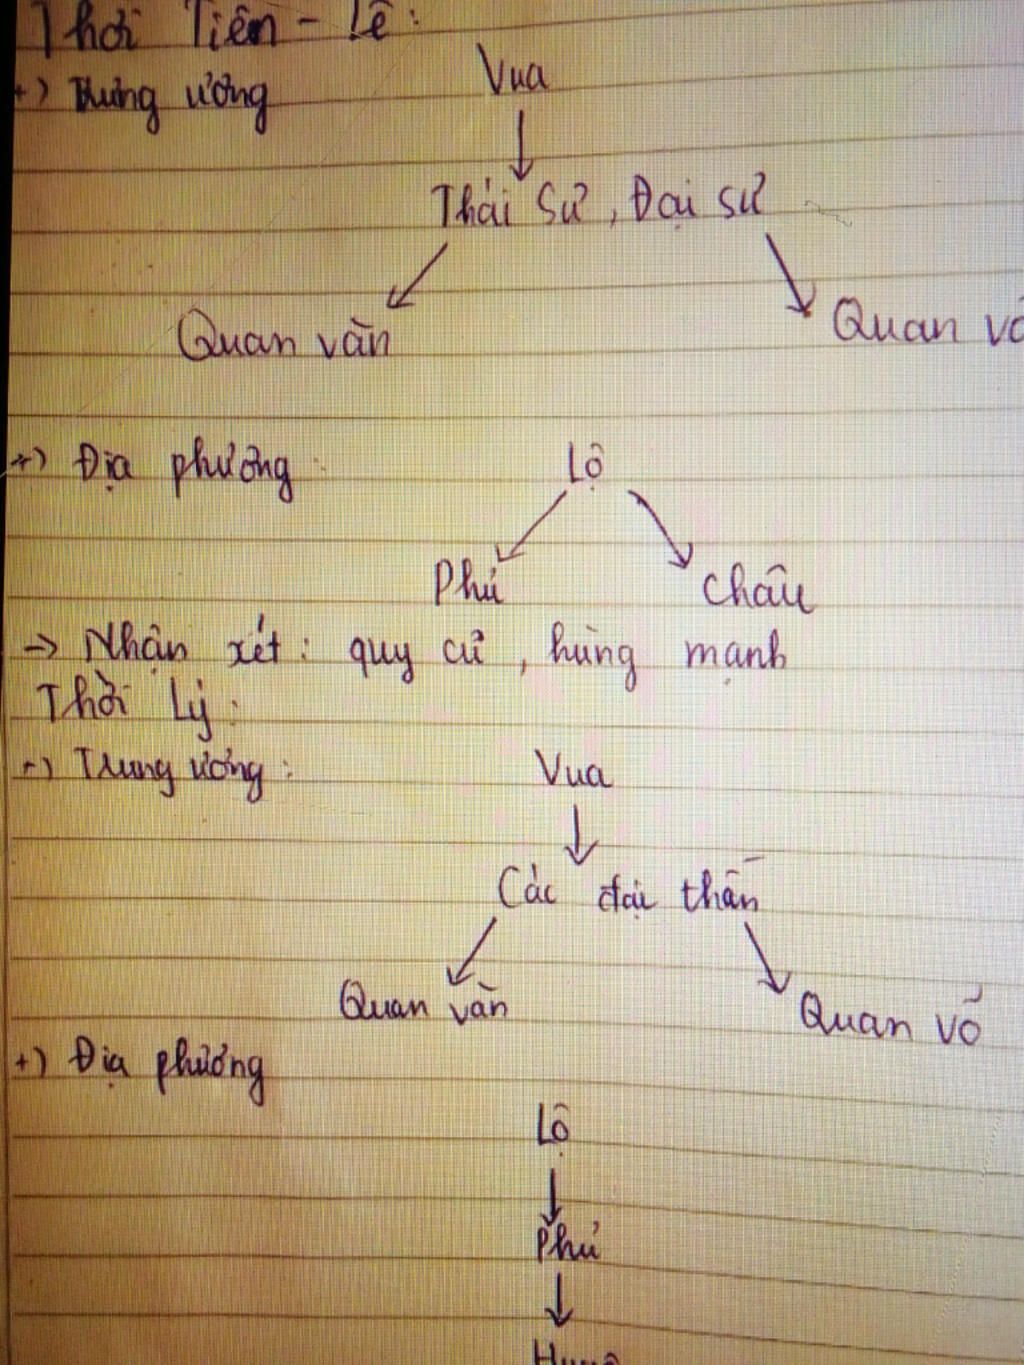 Thời Tiền - Lê:
+) Trung ương
Vua
Thái Sư, Đại sư
Quan văn
Quan
+) Địa phương:
Lộ
Phủ
Châu
→ Nhận xét: quy củ, hùng mạnh
Thời Lý:
+) Trung ương:
Vua
Các đại thần
Quan văn
Quan võ
+) Địa phương
Lộ
Phủ